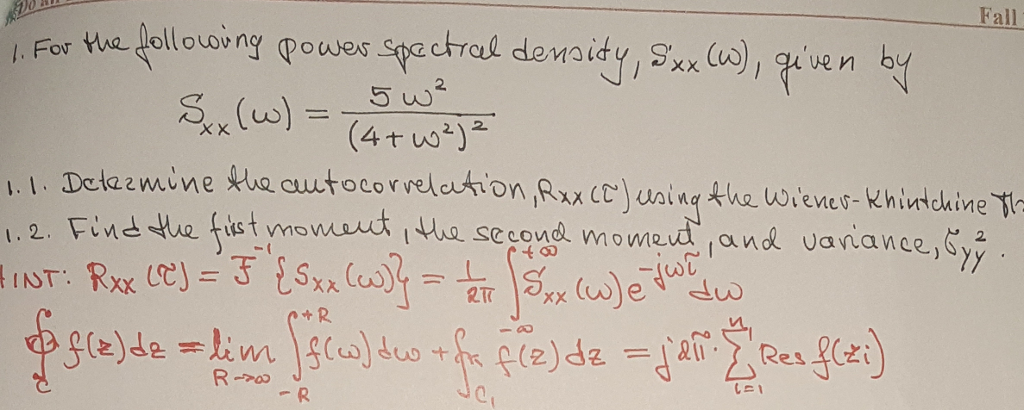 Fall
1. For the following power spectral density, Sxx(ω), given by
Sxx(ω) = 5ω² / (4+ω²)²
1.1. Determine the autocorrelation, Rxx(τ) using the Wiener-Khintchine Th
1.2. Find the first moment, the second moment, and variance, σ²yy.
HINT: Rxx(τ) = F⁻¹{Sxx(ω)} = 1/2π ∫_{-∞}^{+∞} Sxx(ω)e^{-jωτ} dω
∮_C f(z)dz = lim_{R→∞} ∫_{-R}^{+R} f(ω)dω + ∫_{C₁} f(z)dz = j2π·∑_{i=1}^{n} Res f(zi)